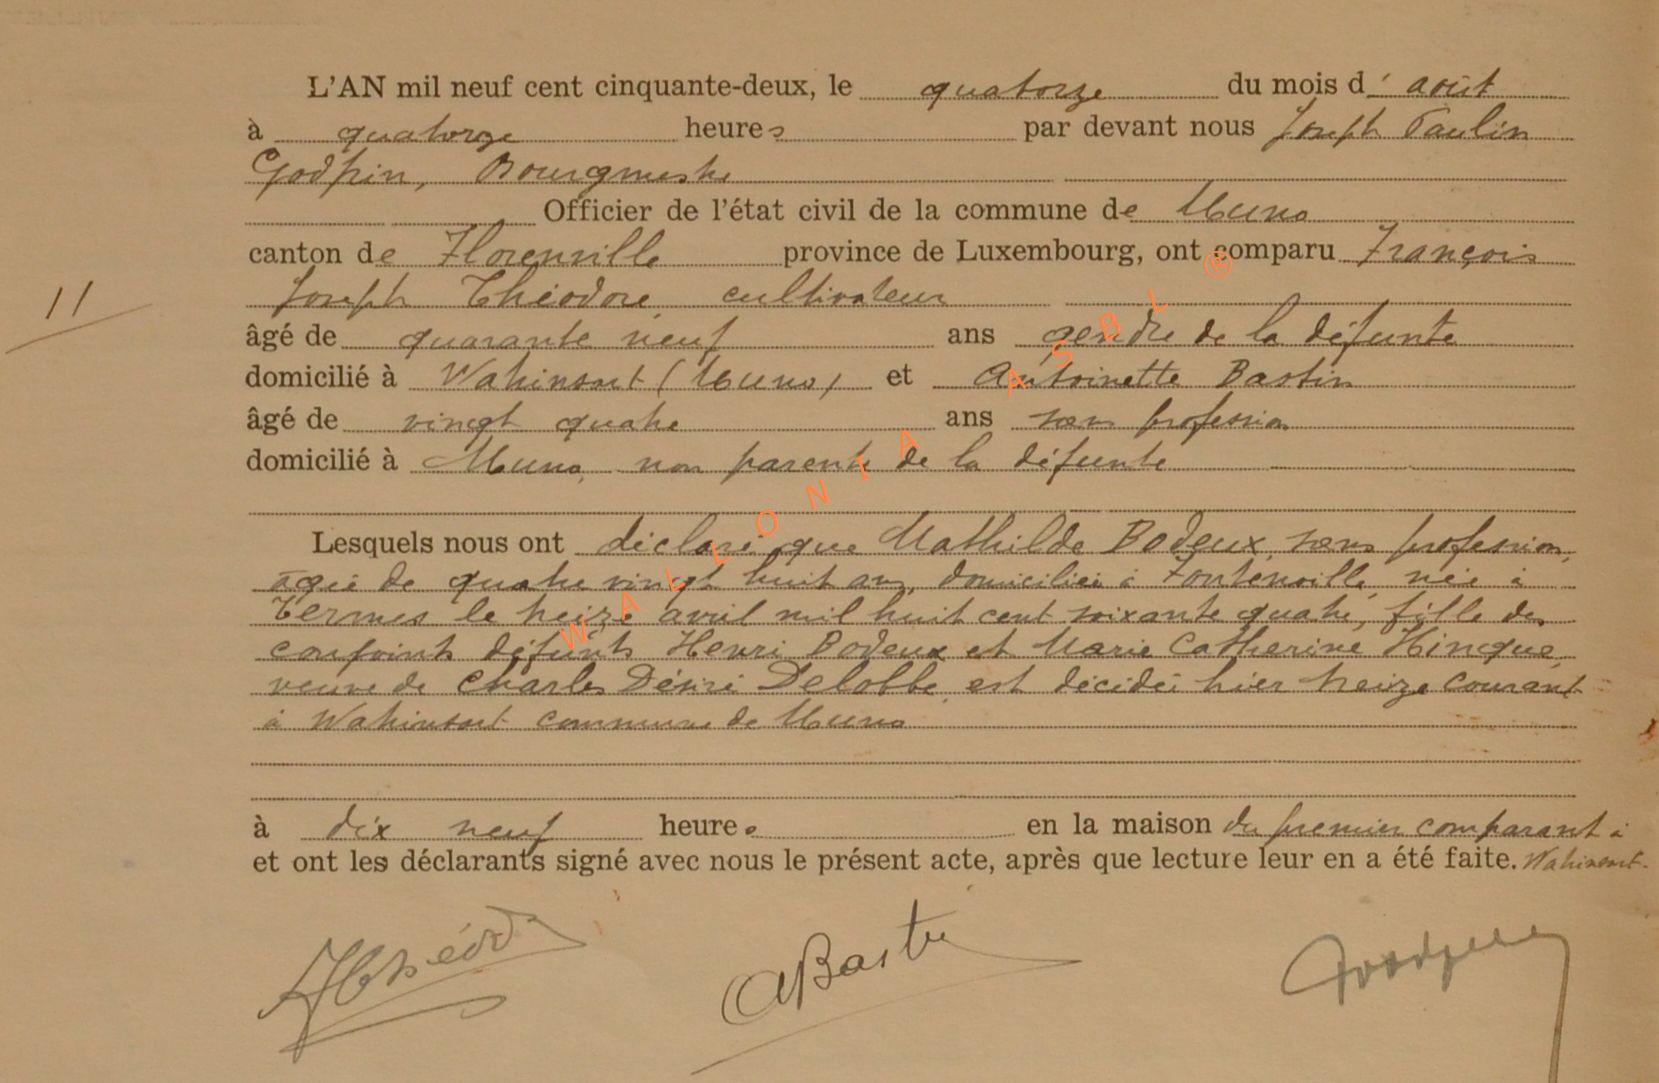 L'AN mil neuf cent cinquante-deux, le quatorze du mois d' août
à quatorze heures par devant nous Joseph Paulin
Godfrin, Bourgmestre
Officier de l'état civil de la commune de Muno
canton de Florenville province de Luxembourg, ont comparu François
Joseph Théodore, cultivateur
11
âgé de quarante neuf ans gendre de la défunte
domicilié à Wahinsart (Muno) et Antoinette Bastin
âgé de vingt quatre ans sans profession
domicilié à Muno, non parente de la défunte
Lesquels nous ont déclaré que Mathilde Bodeux, sans profession,
âgée de quatre vingt huit ans, domiciliée à Fontenoille, née à
Termes le treize avril mil huit cent soixante quatre, fille des
conjoints défunts Henri Bodeux et Marie Catherine Hincque,
veuve de Charles Désiré Delobbe, est décédée hier treize courant
à Wahinsart commune de Muno
à dix neuf heures en la maison du premier comparant à
et ont les déclarants signé avec nous le présent acte, après que lecture leur en a été faite. Wahinsart.
ABastin
WALLONIA ASBL ®